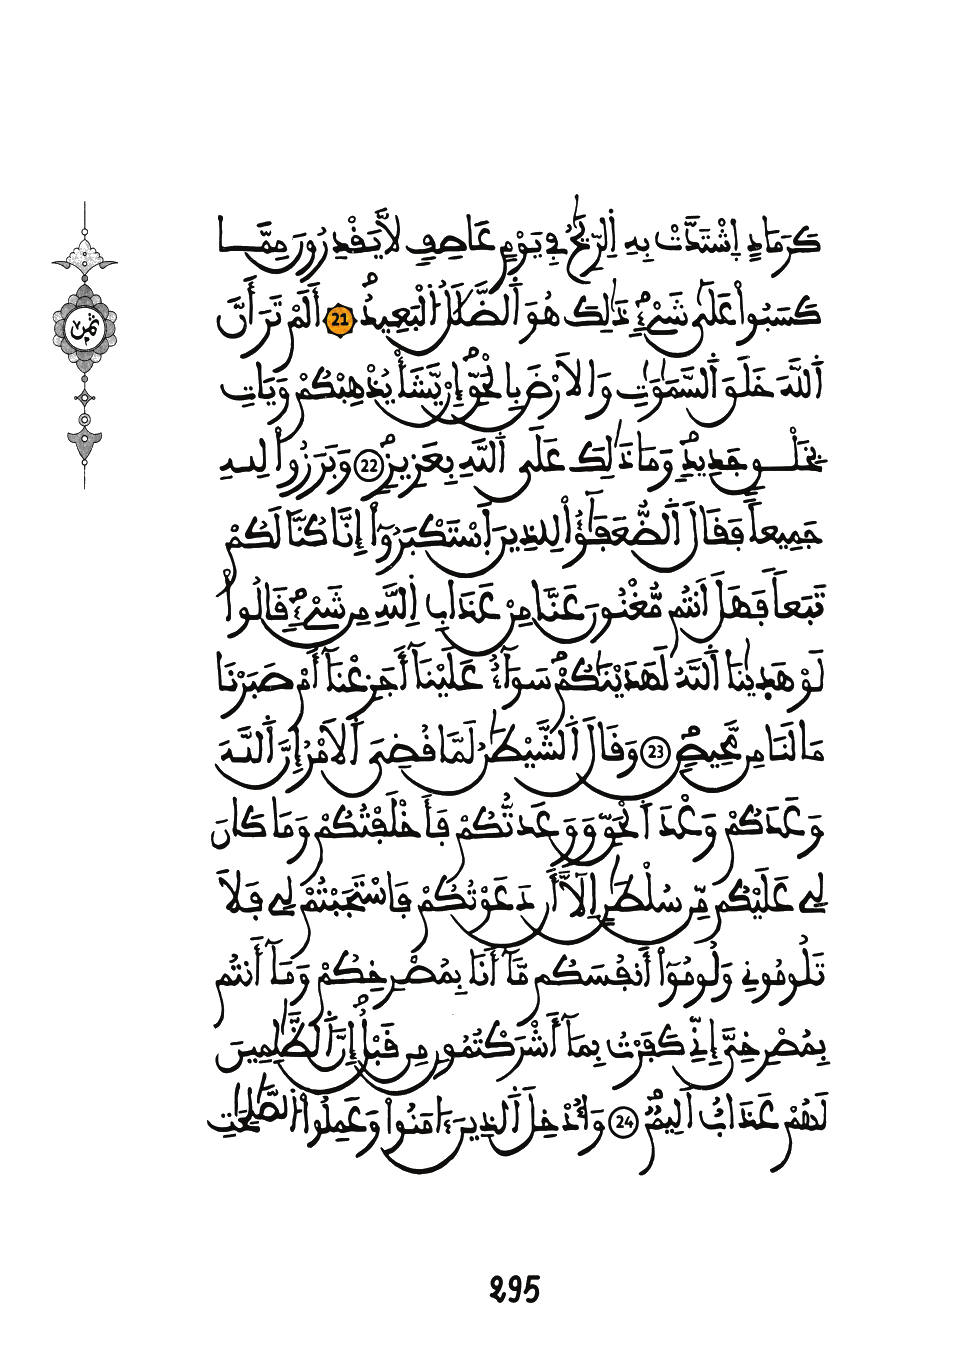 كَرَمَادٍ اِشْتَدَّتْ بِهِ اِ۬لرِّيَٰحُ فِے يَوْمٍ عَاصِفٖ لَّا يَقْدِرُونَ مِمَّا
كَسَبُواْ عَلَىٰ شَےْءٖ ذَٰلِكَ هُوَ اَ۬لضَّلَٰلُ اُ۬لْبَعِيدُۖ 21 أَلَمْ تَرَ أَنَّ
اَ۬للَّهَ خَلَقَ اَ۬لسَّمَٰوَٰتِ وَالَارْضَ بِالْحَقِّۖ إِنْ يَّشَأْ يُذْهِبْكُمْ وَيَاتِ
بِخَلْقٖ جَدِيدٖۖ وَمَا ذَٰلِكَ عَلَى اَ۬للَّهِ بِعَزِيزٖۖ 22 وَبَرَزُواْ لِلهِ
جَمِيعاٗ فَقَالَ اَ۬لضُّعَفَٰٓؤُاْ لِلذِينَ اَ۪سْتَكْبَرُوٓاْ إِنَّا كُنَّا لَكُمْ
تَبَعاٗ فَهَلَ اَنتُم مُّغْنُونَ عَنَّا مِنْ عَذَابِ اِ۬للَّهِ مِن شَےْءٖۖ قَالُواْ
لَوْ هَدَيٰنَا اَ۬للَّهُ لَهَدَيْنَٰكُمْۖ سَوَآءٌ عَلَيْنَآ أَجَزِعْنَآ أَمْ صَبَرْنَا
مَا لَنَا مِن مَّحِيصٖۖ 23 وَقَالَ اَ۬لشَّيْطَٰنُ لَمَّا قُضِيَ اَ۬لَامْرُ إِنَّ اَ۬للَّهَ
وَعَدَكُمْ وَعْدَ اَ۬لْحَقِّ وَوَعَدتُّكُمْ فَأَخْلَفْتُكُمْ وَمَا كَانَ
لِے عَلَيْكُم مِّن سُلْطَٰنٍ اِلَّآ أَن دَعَوْتُكُمْ فَاسْتَجَبْتُمْ لِے فَلَا
تَلُومُونِے وَلُومُوٓاْ أَنفُسَكُم مَّآ أَنَا بِمُصْرِخِكُمْ وَمَآ أَنتُم
بِمُصْرِخِيَّ إِنِّے كَفَرْتُ بِمَآ أَشْرَكْتُمُونِ مِن قَبْلُۖ إِنَّ اَ۬لظَّٰلِمِينَ
لَهُمْ عَذَابٌ اَلِيمٞۖ 24 وَأُدْخِلَ اَ۬لذِينَ ءَامَنُواْ وَعَمِلُواْ اُ۬لصَّٰلِحَٰتِ
ثمن
295